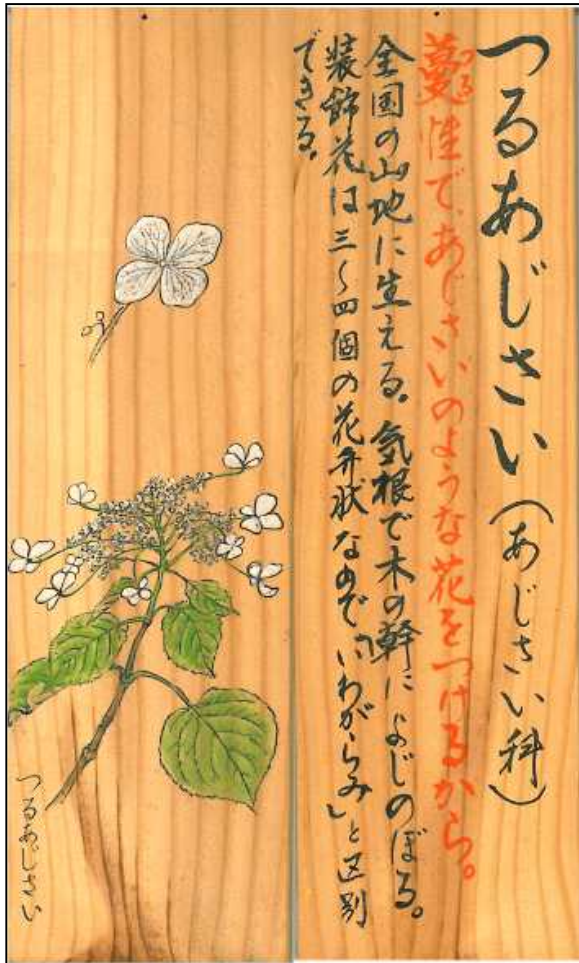 つるあじさい（あじさい科）
つる
蔓性で、あじさいのような花をつけるから。
全国の山地に生える。気根で木の幹によじのぼる。
装飾花は三〜四個の花弁状なので「いわがらみ」と区別
できる。
つるあじさい